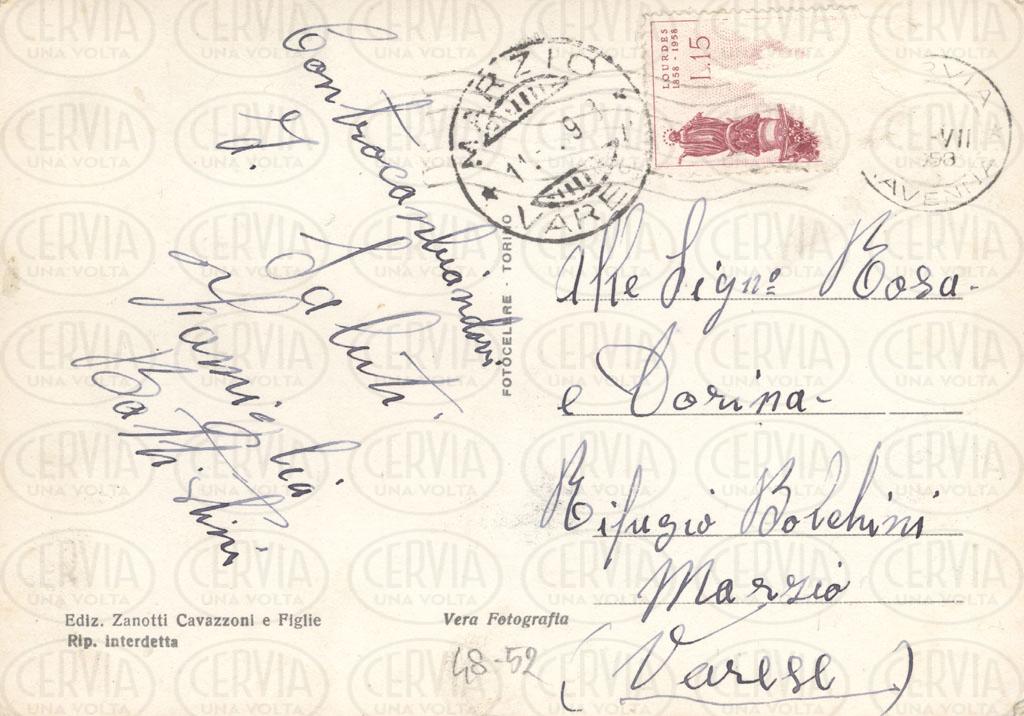 Contraccambiandovi
Id.
Saluti
Famiglia
Battistini
Ediz. Zanotti Cavazzoni e Figlie
Rip. interdetta
Vera Fotografia
48-52
FOTOCELERE - TORINO
MARZIO
VARESE
LOURDES
1858 - 1958
L.15
-VII
958
RAVENNA
Alle Sign.e Rosa-
e Dorina-
Rifugio Bolchini
Marzio
(Varese)
CERVIA
UNA VOLTA